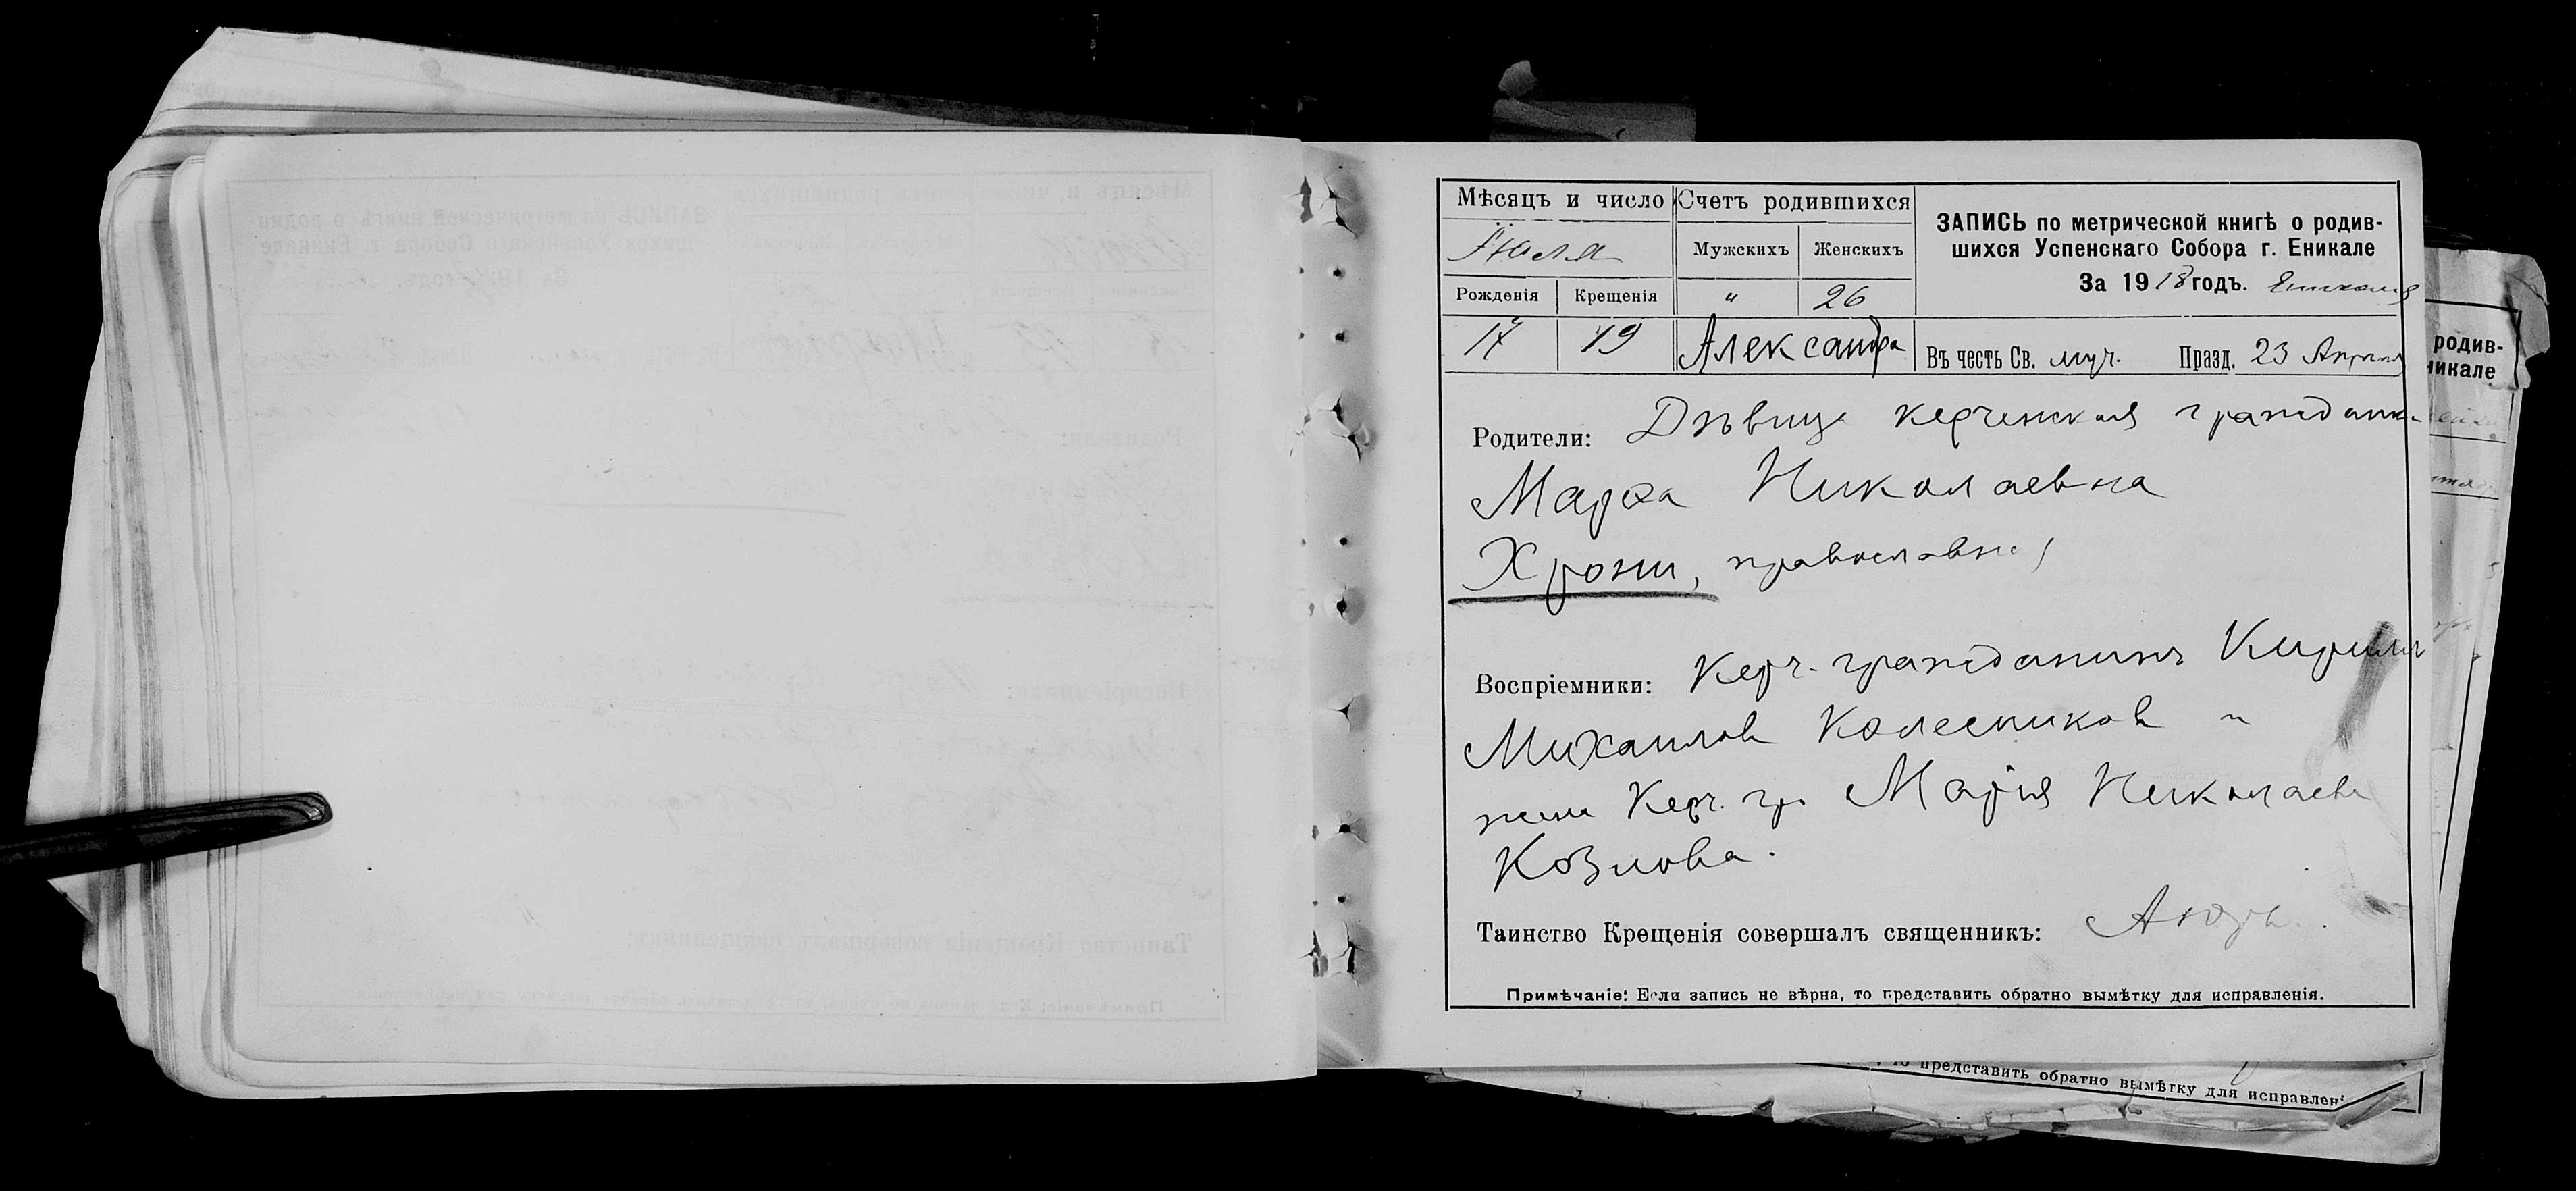 Мѣсяцъ и число
Счетъ родившихся
ЗАПИСЬ по метрической книгѣ о родив-
шихся Успенскаго Собора г. Еникале
За 1918 годъ.
Іюля
Мужскихъ
Женскихъ
Рожденія
Крещенія
"
26
17
19
Александра
Въ честь Св. муч. Празд. 23 Апрѣля
Родители: Дѣвица керченская гражданк.
Марѳа Николаевна
Хрони, православная
Воспріемники: Керч. гражданинъ Кириллъ
Михаилов Колесников и
жена Керч. гр. Марія Николаева
Козлова.
Таинство Крещенія совершалъ священникъ:
Примѣчаніе: Если запись не вѣрна, то представить обратно вымѣтку для исправленія.
родив-
никале
то представить обратно вымѣтку для исправлені